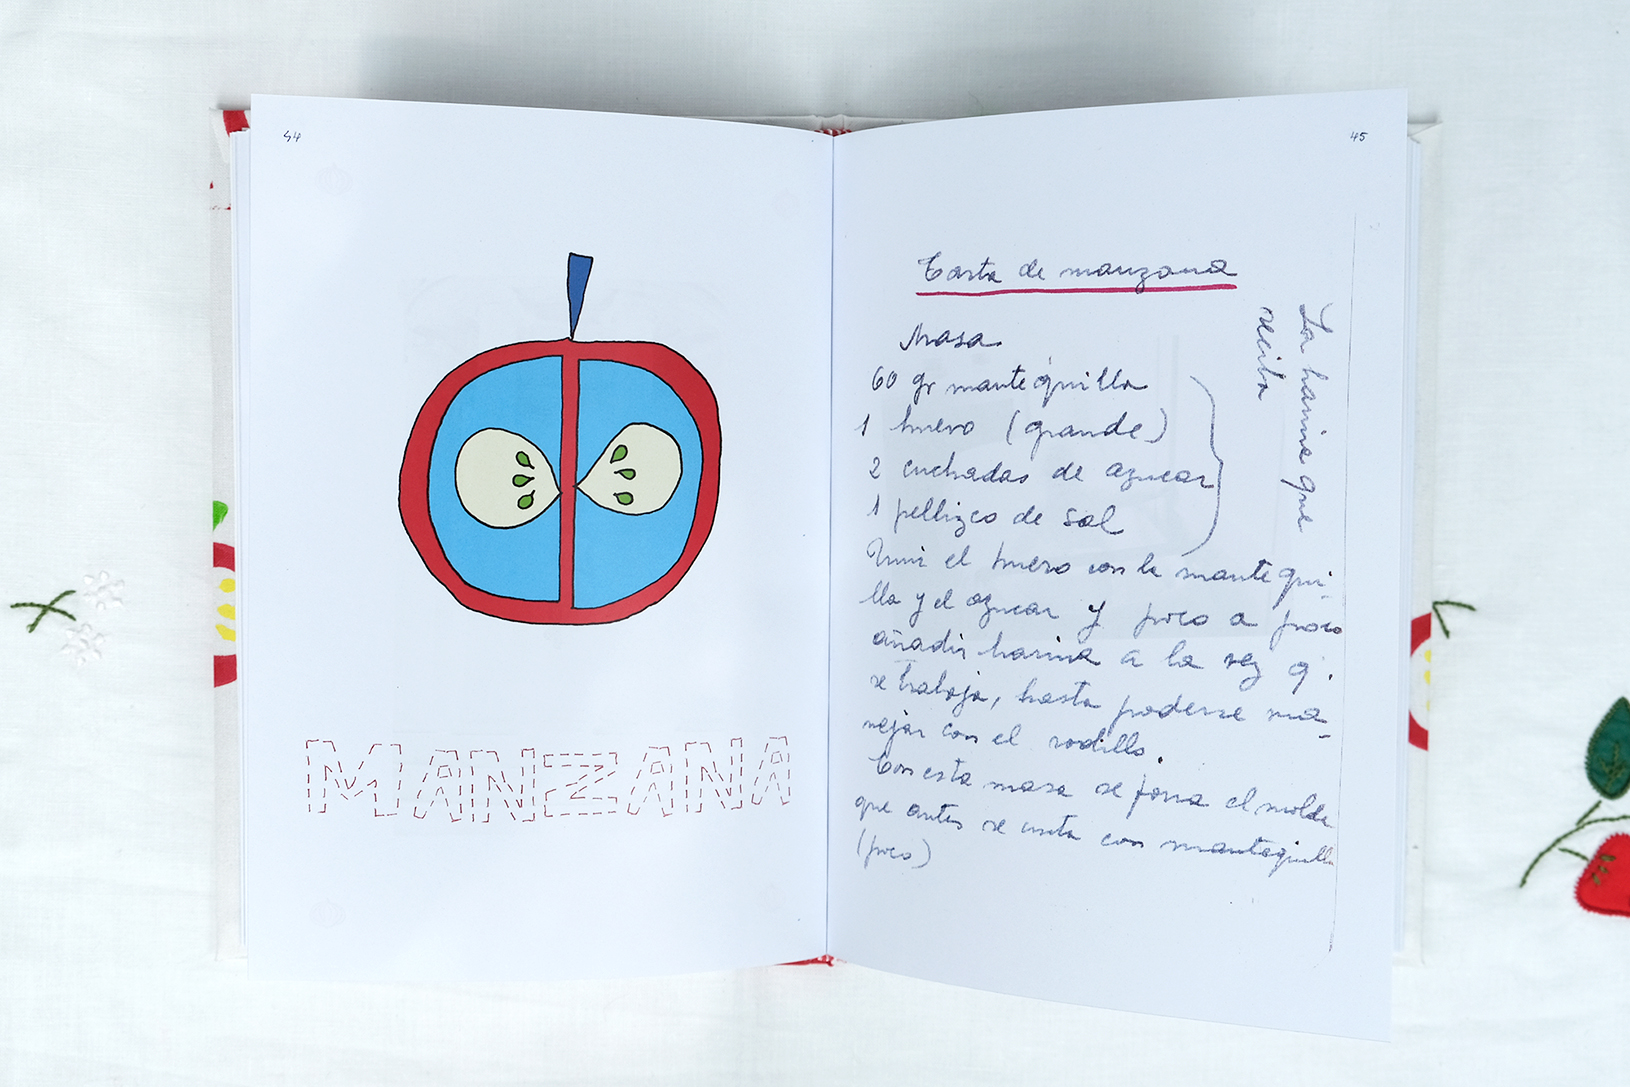 44
MANZANA
45
Tarta de manzana
Masa
60 gr mantequilla
1 huevo (grande)
2 cuchadas de azucar
1 pellizco de sal
La harina que
reciba
Unir el huevo con la mantequi-
lla y el azucar y poco a poco
añadir harina a la vez q.
se trabaja, hasta poderse ma-
nejar con el rodillo.
Con esta masa se forra el molde
que antes se unta con mantequilla
(poco)